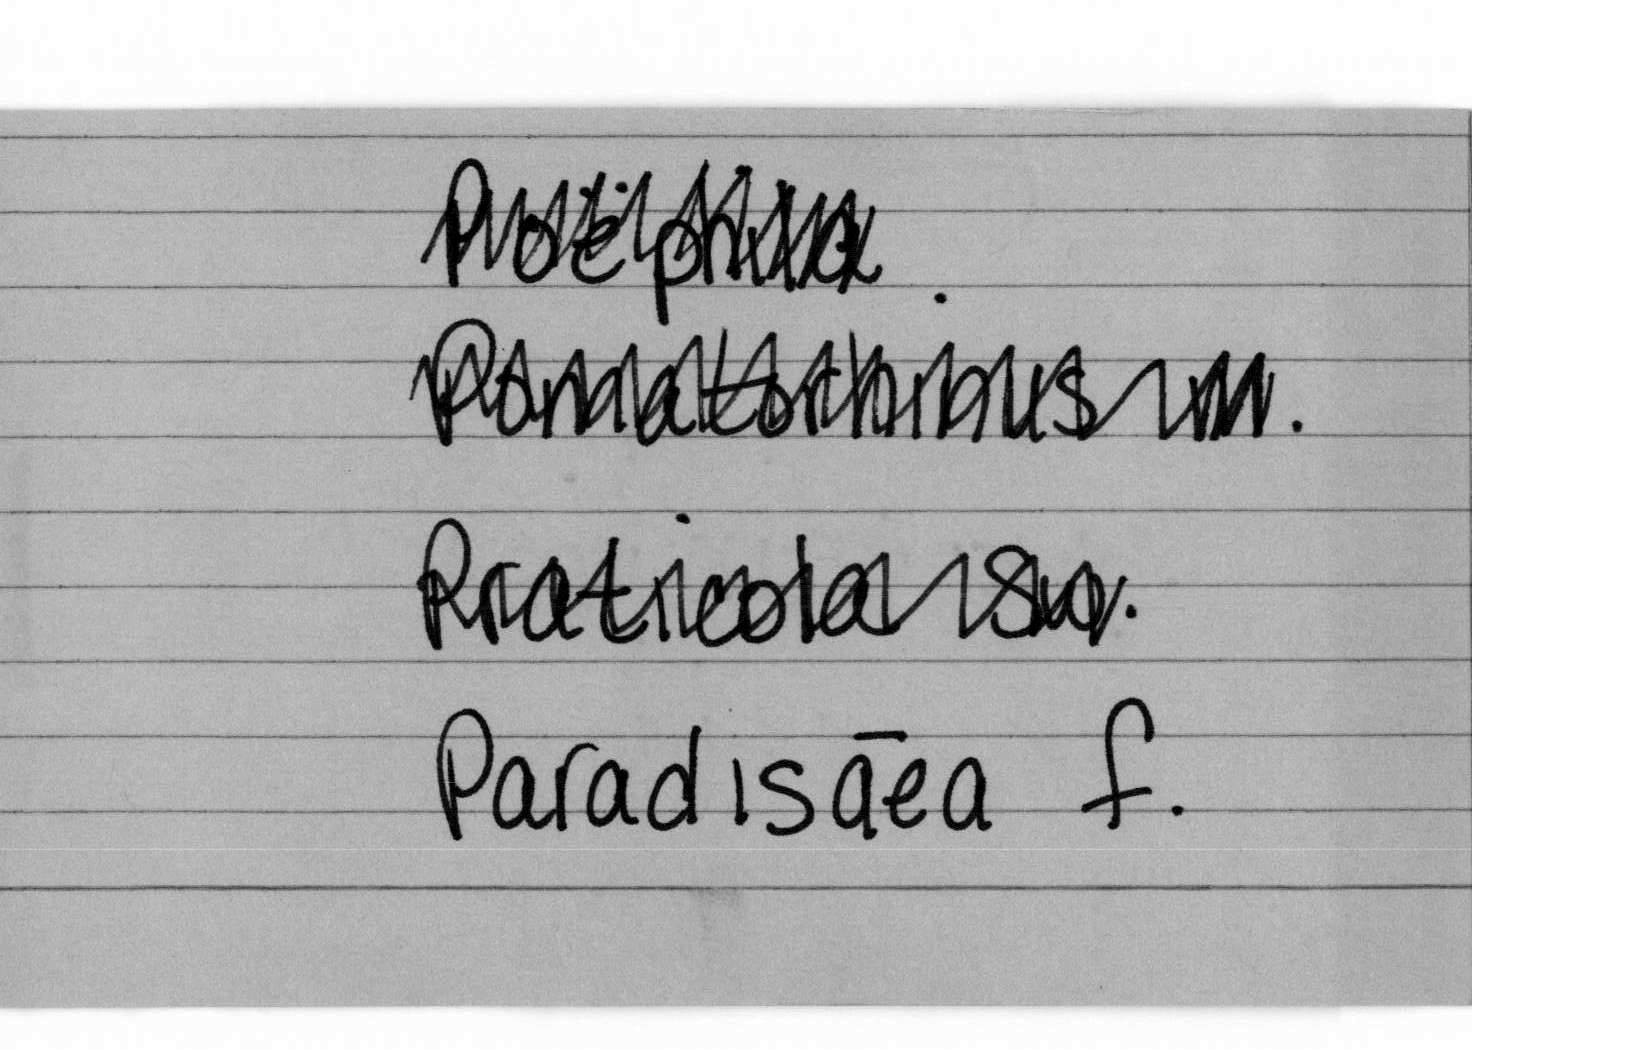 Poëphila
Pomatorhinus m.
Praticola Sw.
Paradisāea f.